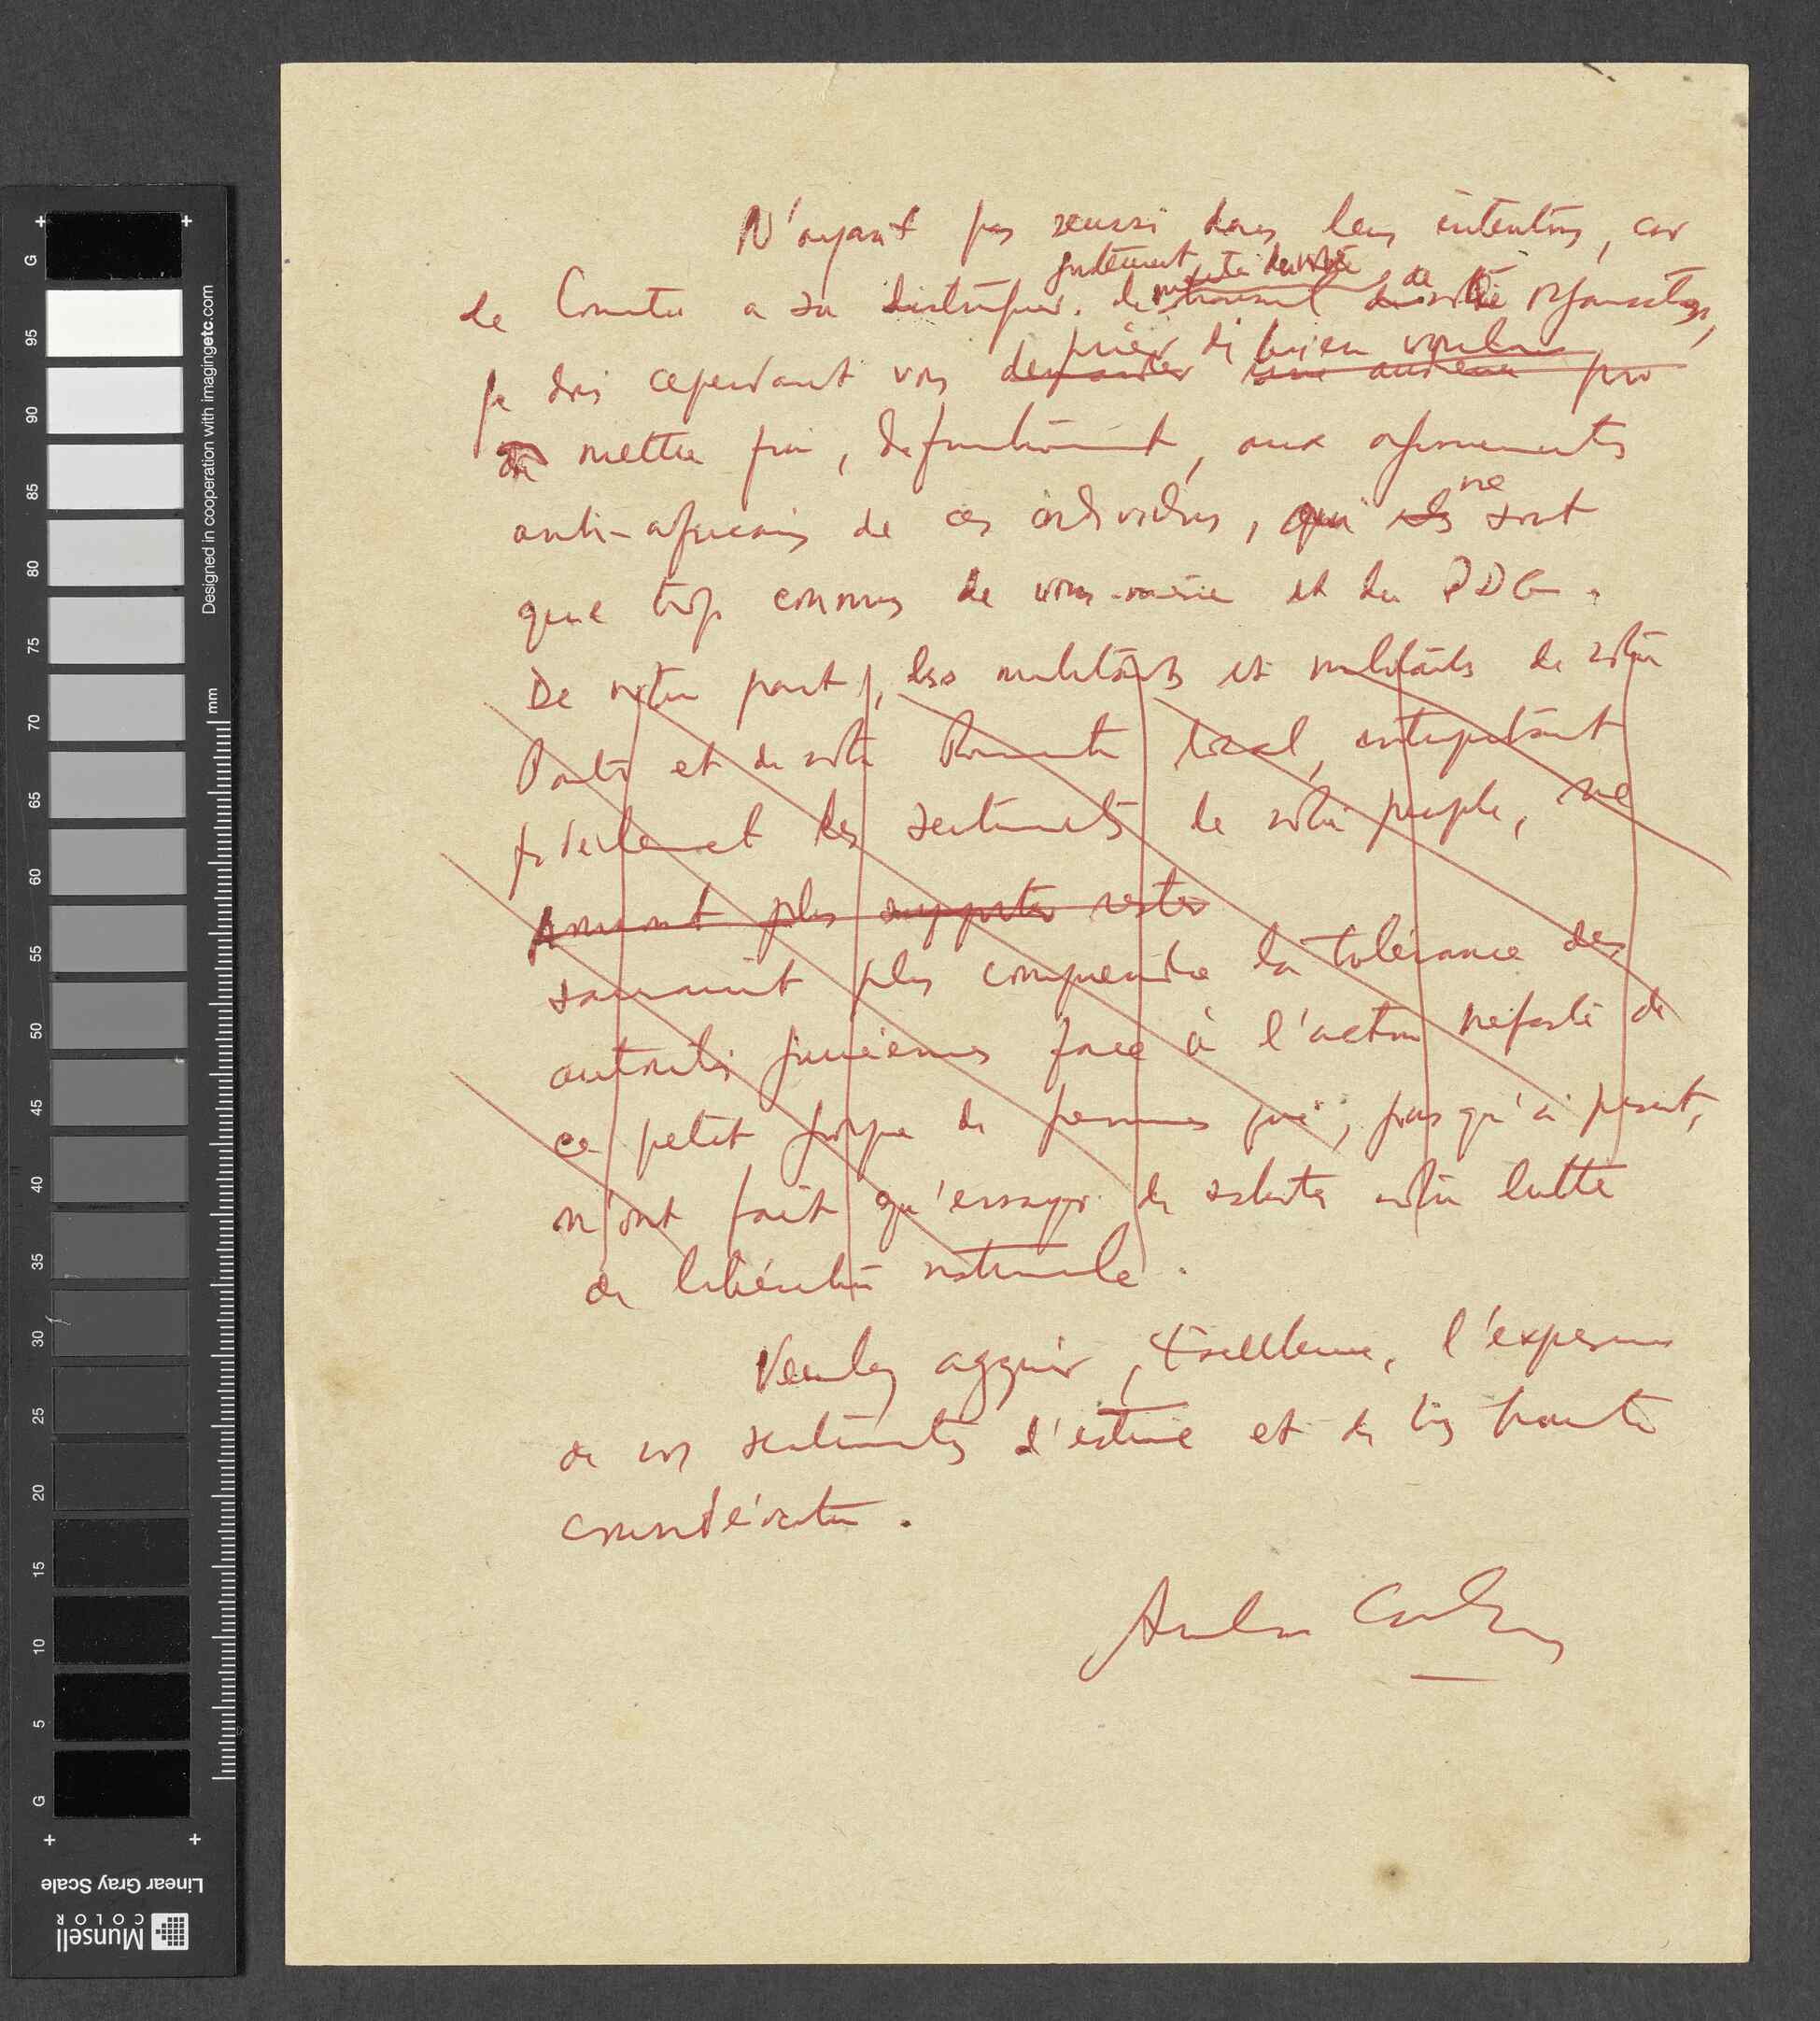 N'ayant pas reussi dans leurs intentions, car
le Comite a su distinguer justement de notre organisation,
je dois cependant vous demander une audience pour
prier de bien vouloir
mettre fin, définitivement, aux agissements
anti-africains de ces individus, qui ils ne sont
que trop connus de vous-même et du PDG.
De notre part, les militants et militants de notre
Parti et de notre Comité local, interprétant
fidèlement les sentiments de notre peuple, ne
peuvent plus supporter rester
sauraient plus comprendre la tolérance des
autorités guinéennes face à l'action néfaste de
ce petit groupe de personnes qui, jusqu'à présent,
n'ont fait qu'essayer de saboter notre lutte
de libération nationale.
Veuillez agréer, Excellence, l'expression
de nos sentiments d'estime et de très haute
considération.
Amilcar Cabral
Designed in cooperation with imagingetc.com
mm
G 95 90 85 80 75 70 65 60 55 50 45 40 35 30 25 20 15 10 5 G
Linear Gray Scale
Munsell
COLOR